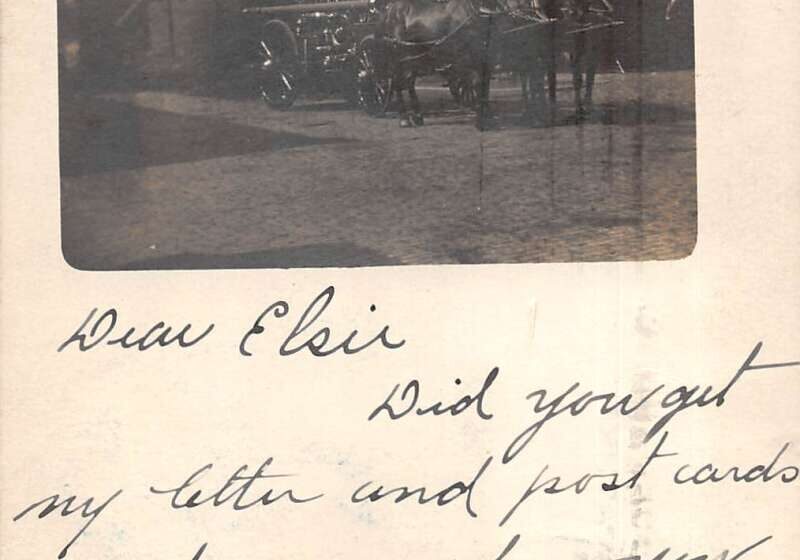 Dear Elsie
Did you get
my letter and post cards